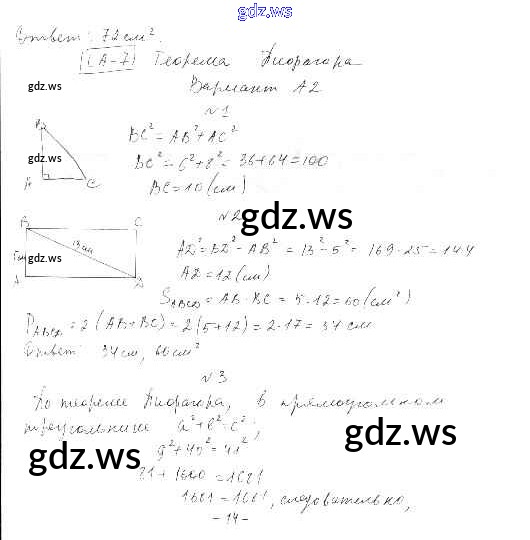 gdz.ws
Ответ: 72 см².
СА-7 Теорема Пифагора
Вариант А2
gdz.ws
№1
B
BC² = AB² + AC²
gdz.ws
BC² = 6² + 8² = 36 + 64 = 100
A C
BC = 10 (см)
№2
gdz.ws
B C
13 см
gdz.ws
AD² = BD² - AB² = 13² - 5² = 169 - 25 = 144
A D
AD = 12 (см)
S ABCD = AB · BC = 5 · 12 = 60 (см²)
P ABCD = 2 (AB + BC) = 2 (5 + 12) = 2 · 17 = 34 см
Ответ: 34 см, 60 см²
№3
По теореме Пифагора, в прямоугольном
треугольнике a² + b² = c²;
gdz.ws
9² + 40² = 41²
gdz.ws
81 + 1600 = 1681
1681 = 1681, следовательно,
- 14 -